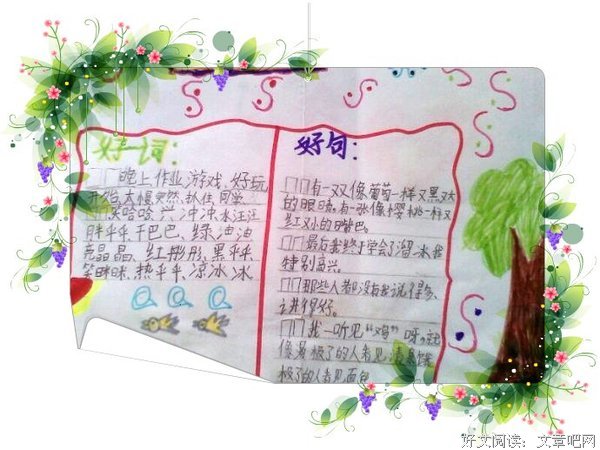 好词：
晚上、作业、游戏、好玩
开始、大懒、突然、抓住、同学
笑哈哈、兴冲冲、水汪汪
胖乎乎、干巴巴、绿油油
亮晶晶、红彤彤、黑乎乎
笑眯眯、热乎乎、凉冰冰
好句：
有一双像葡萄一样又黑又大
的眼睛，有一张像樱桃一样又
红又小的嘴巴。
最后我终于学会了溜冰我
特别高兴。
那些人都没有我说得多、
讲得好。
我一听见“妈”呀，就
像渴极了的人看见清泉饿
极了的人看见面包
好文阅读：文章吧网